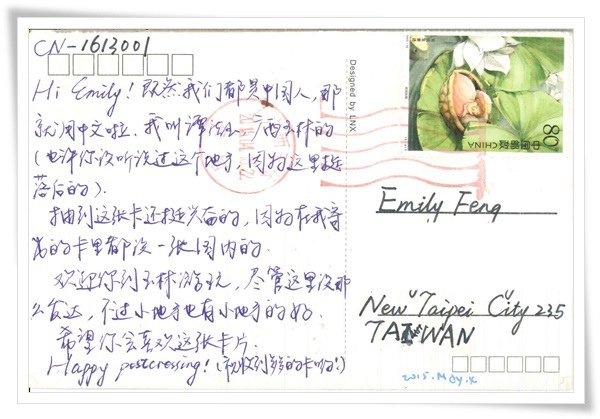 CN-1613001
Hi Emily! 既然我们都是中国人,那
就用中文啦. 我叫谭 广西玉林的
(也许你没听说过这个地方, 因为这里挺
落后的).
抽到这张卡还挺兴奋的, 因为在我寄
的卡里都没一张国内的.
欢迎你到玉林游玩, 尽管这里没那
么发达, 不过小地方也有小地方的好.
希望你会喜欢这张卡片.
Happy postcrossing! (祝收到多多的卡哟!)
Designed by LNX
80
中国邮政
CHINA
Emily Feng
New Taipei City 235
TAIWAN
2015.May.